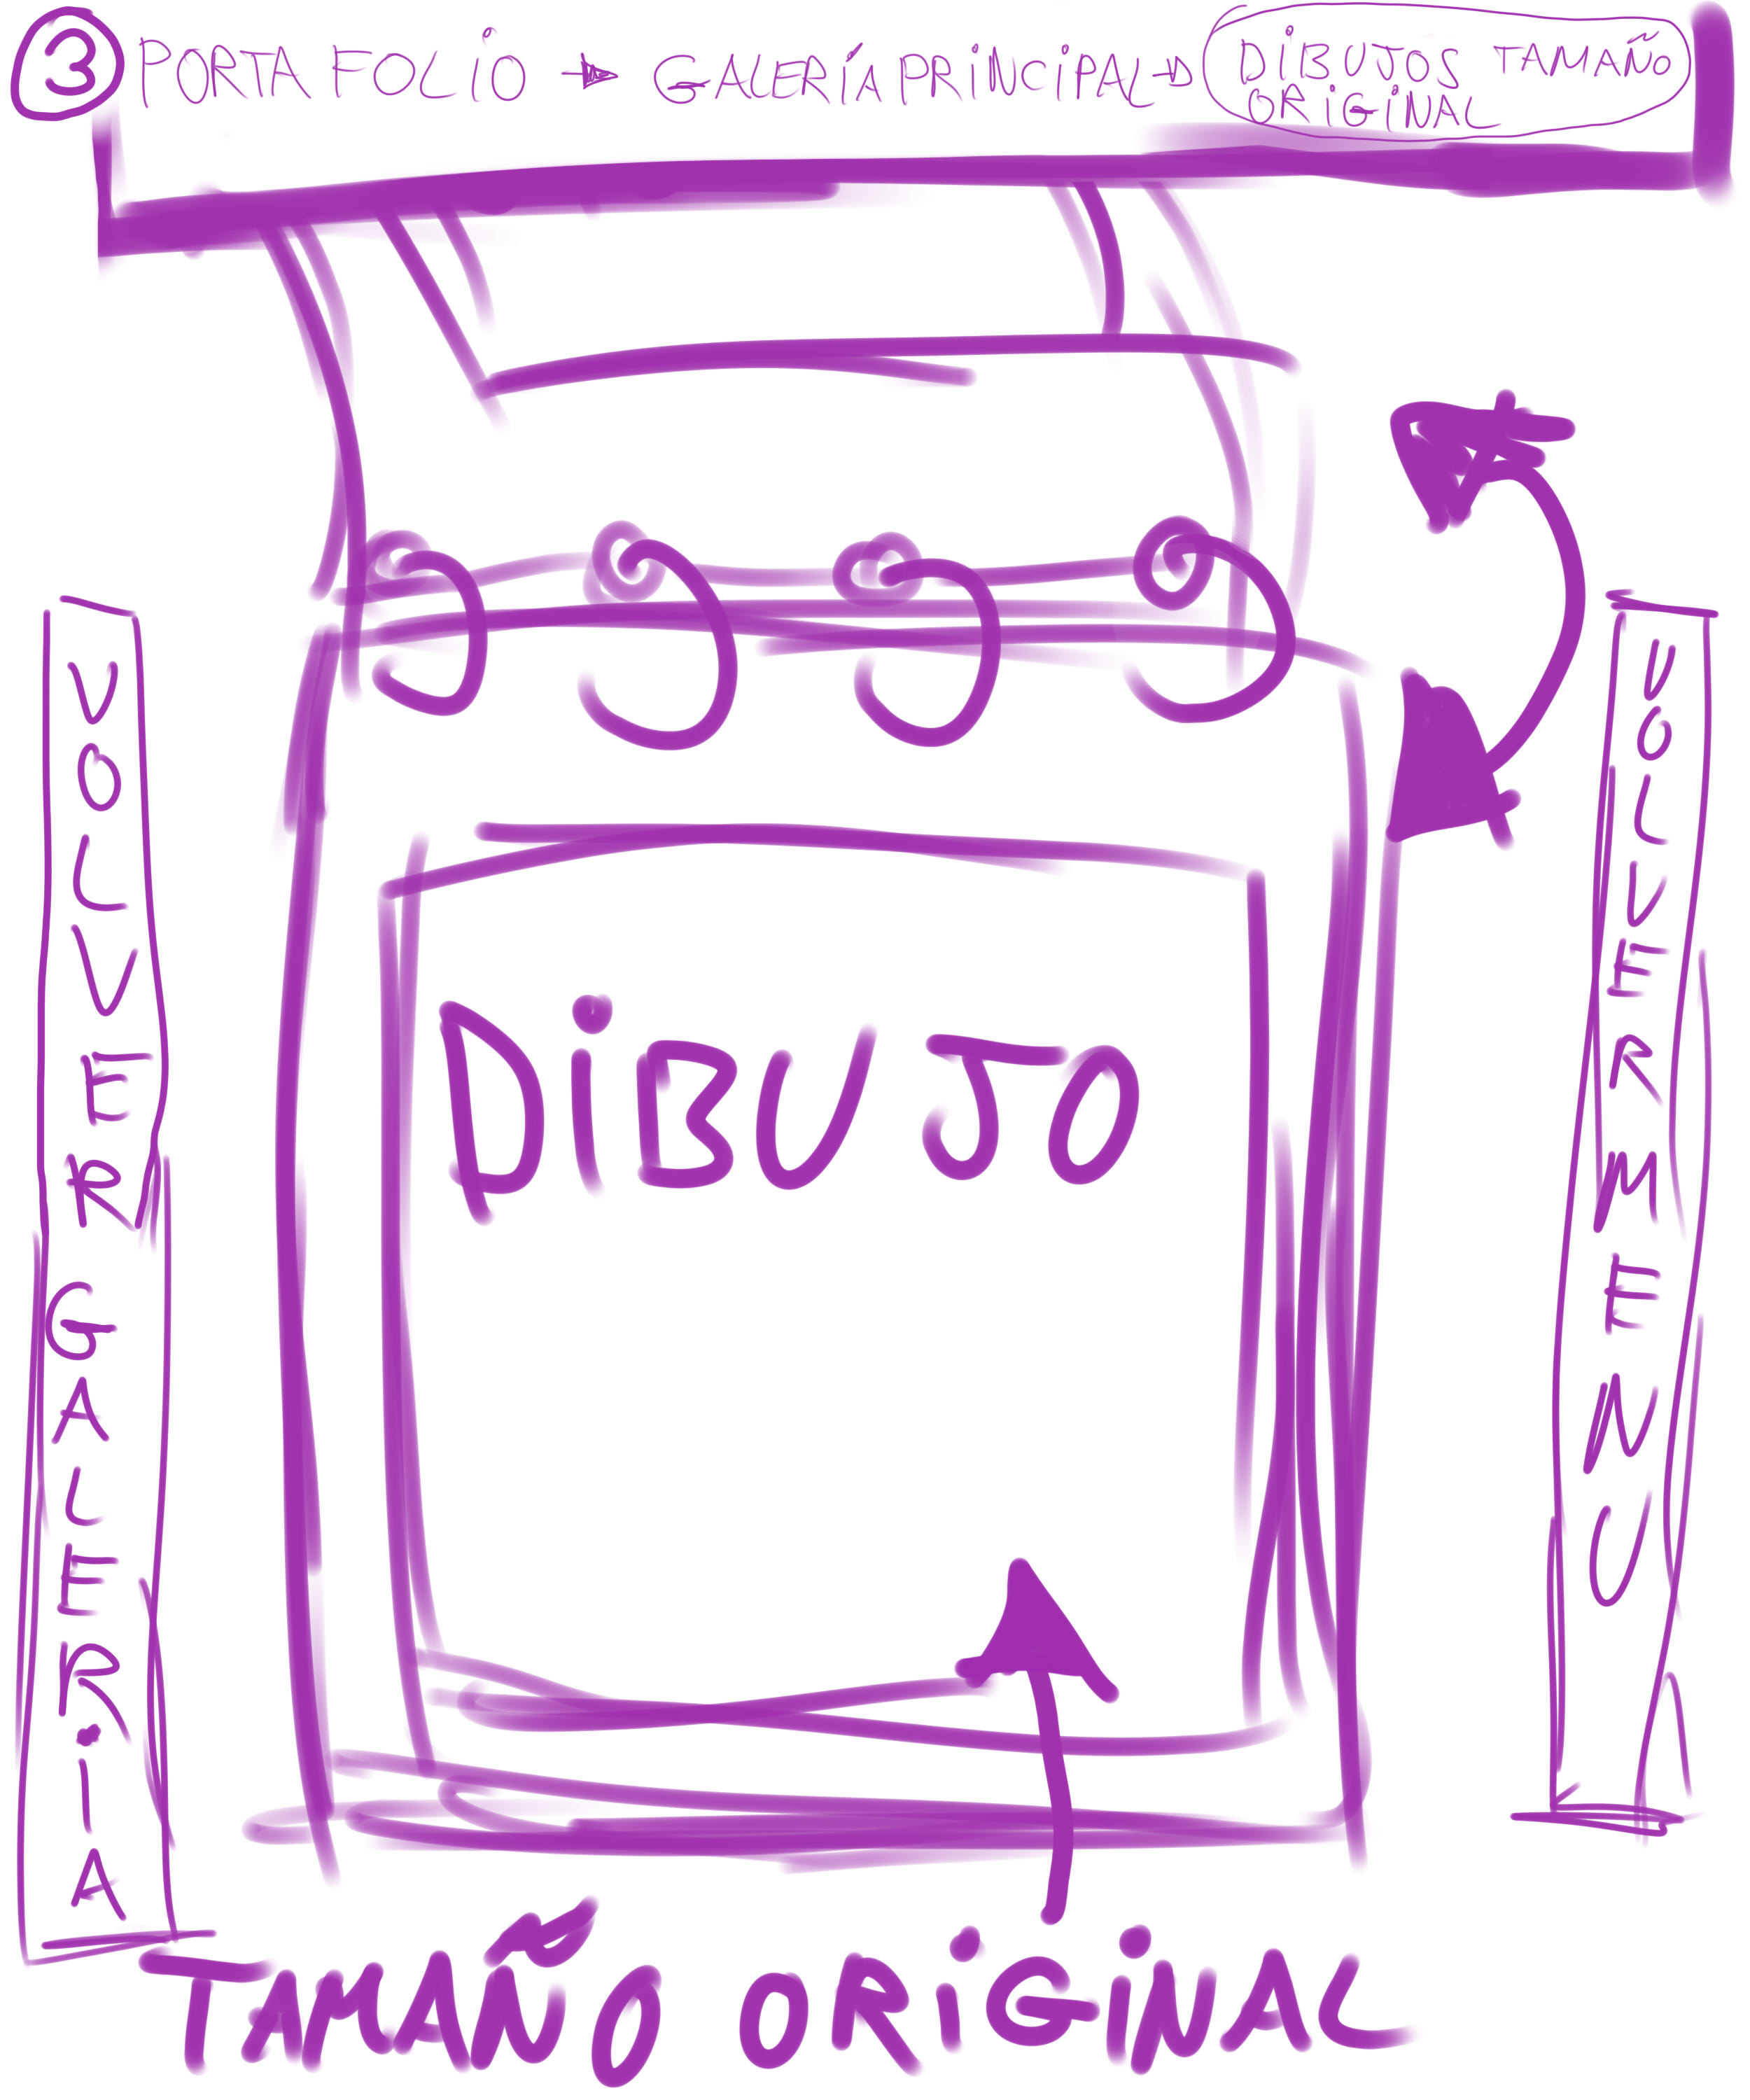 3 PORTAFOLIO → GALERÍA PRINCIPAL → DIBUJOS TAMAÑO
ORIGINAL
VOLVER GALERIA
DIBUJO
VOLVER MENU
TAMAÑO ORIGINAL